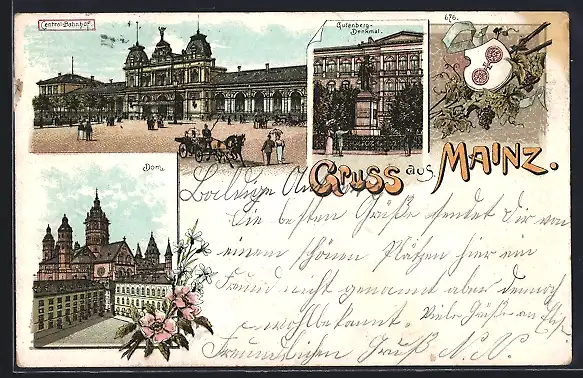 Central-Bahnhof.
Gutenberg-
Denkmal.
676.
Dom.
Gruss aus MAINZ.
Die besten Grüße sendet Dir von
einem schönen Plätzchen hier ein
Freund nicht genannt aber dennoch
wohlbekannt. Viele Grüße an
Freundlichen Gruß N. N.